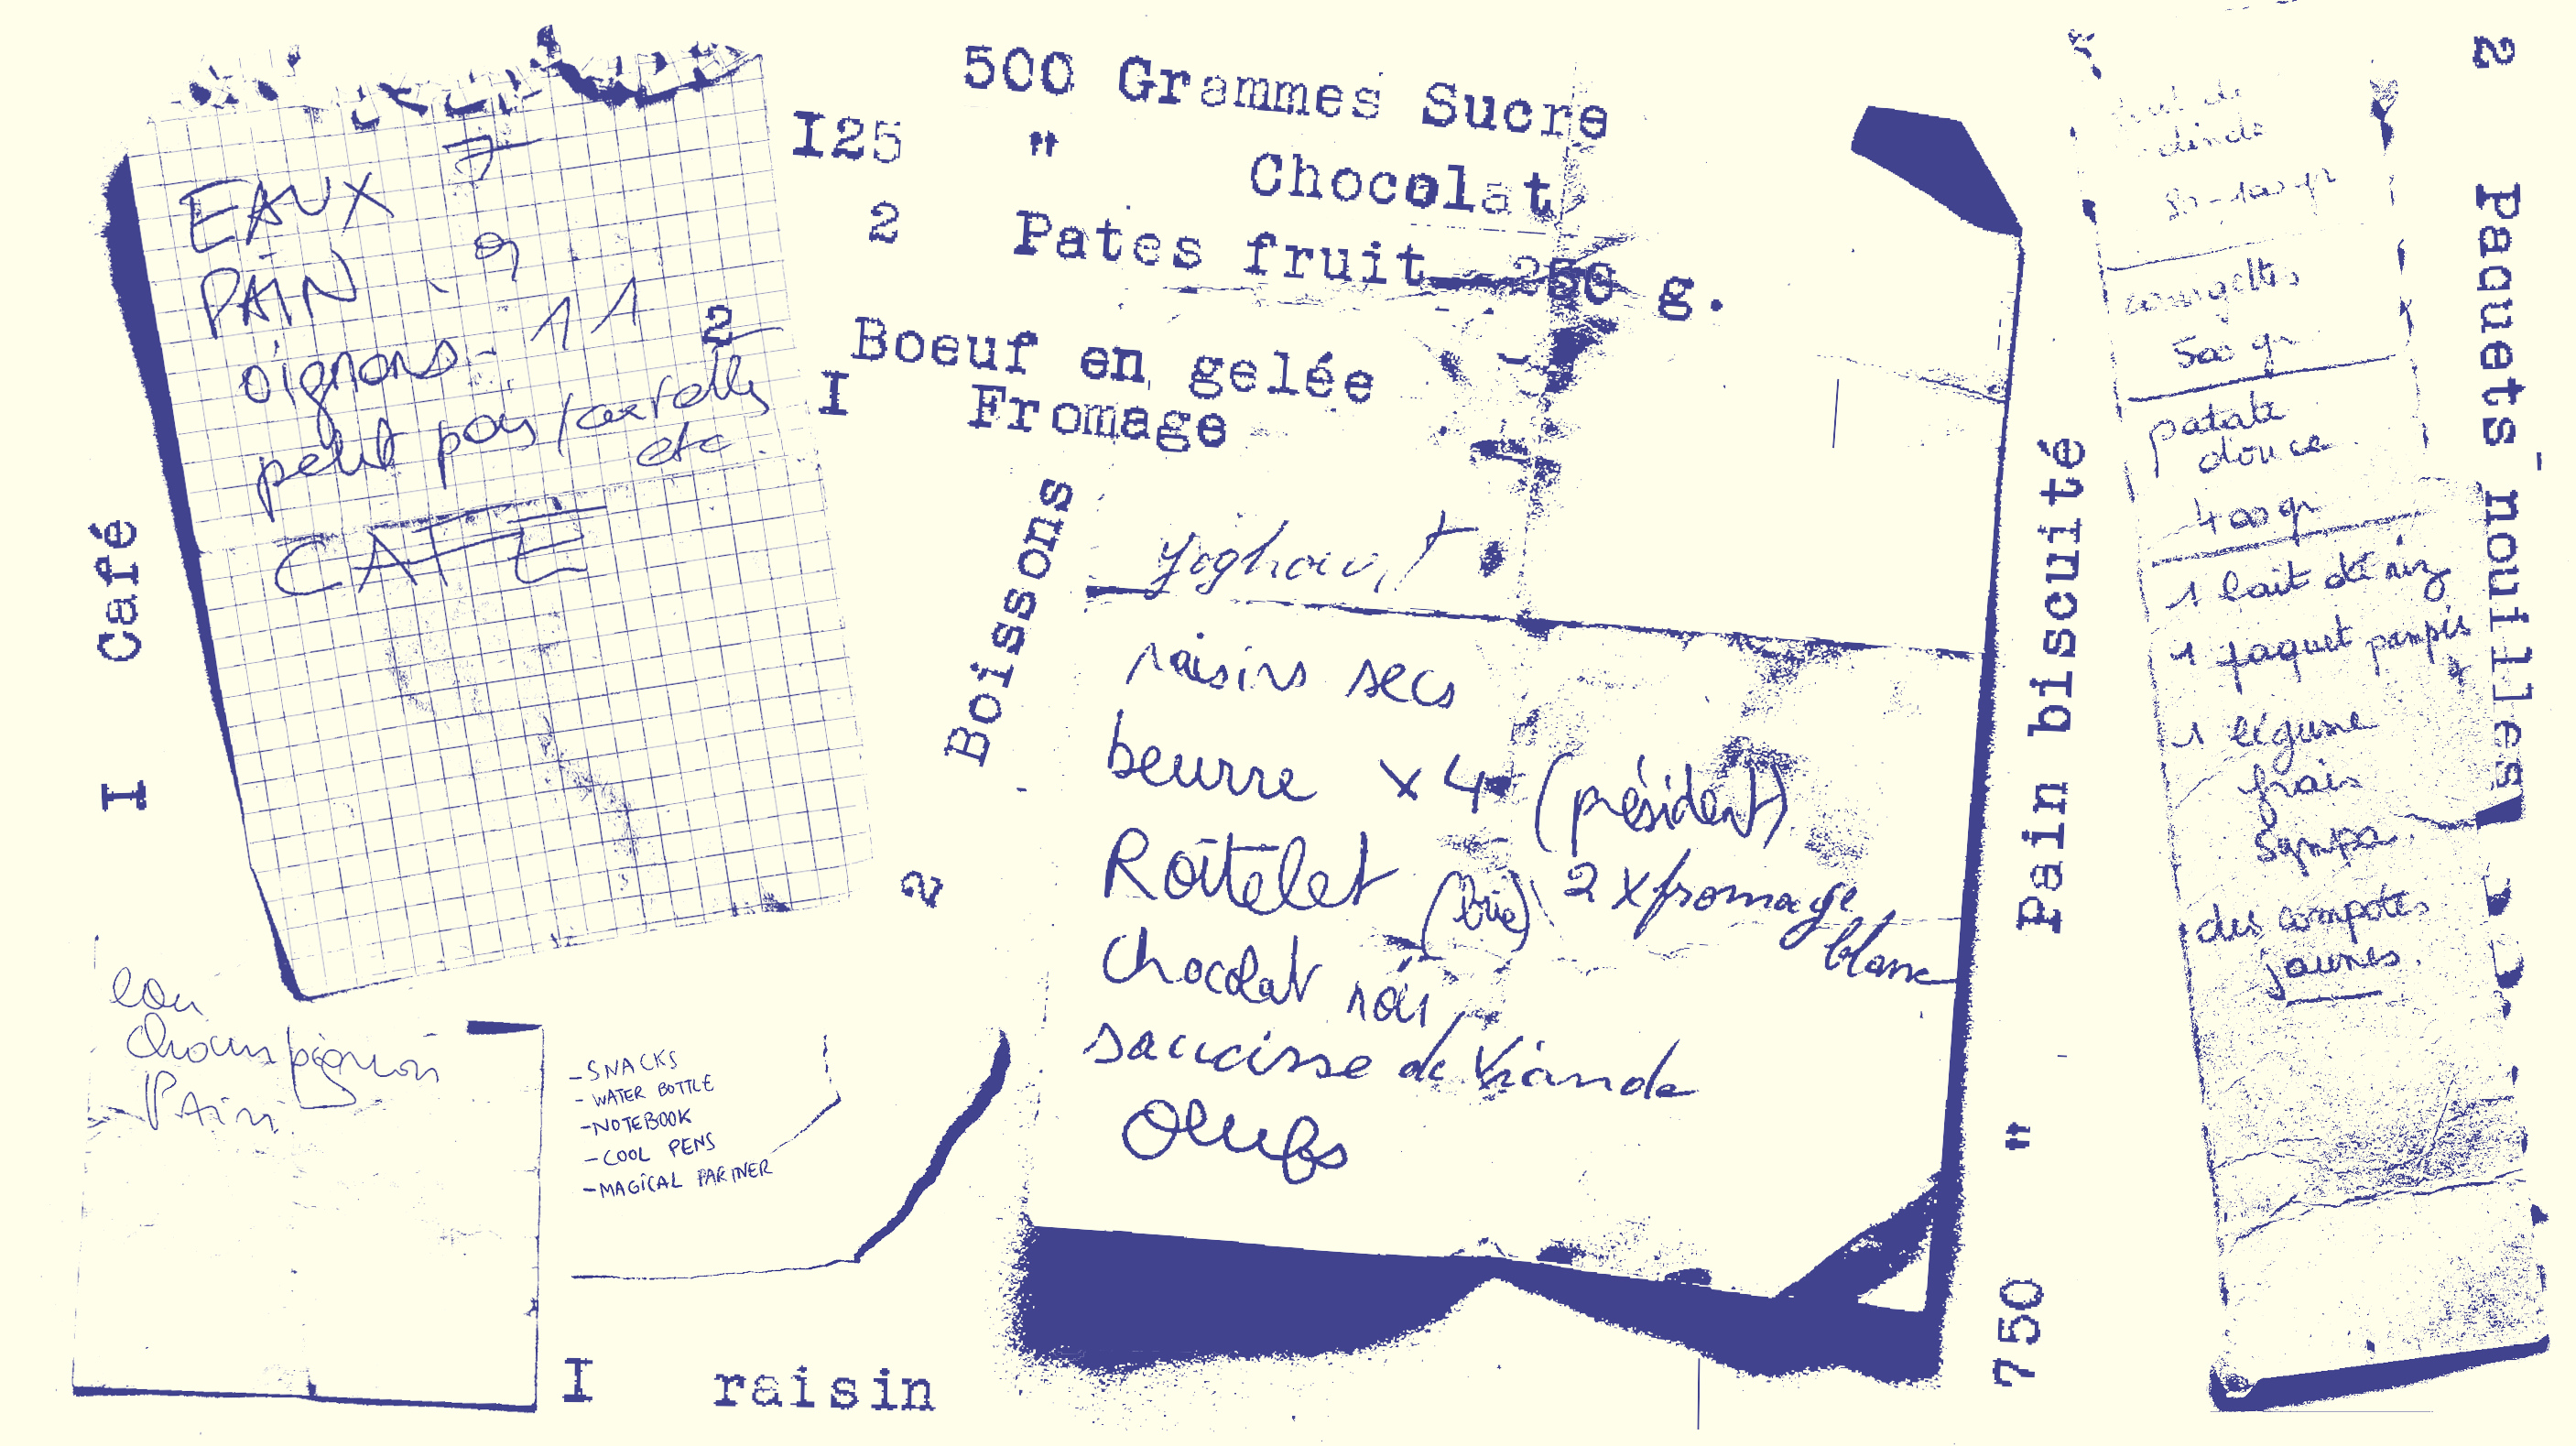 EAUX 7
PAIN . 9
oignons - 11
petit pois / carottes
etc.
CAFE
I Café
500 Grammes Sucre
I25 " Chocolat
2 Pates fruit 250 g.
2 Boeuf en gelée
I Fromage
2 Boissons
Yoghourt
raisins secs
beurre x 4 (président)
Roitelet (Brie) 2 x fromage
blanc
chocolat noir
saucisse de viande
Oeufs
750 " Pain biscuité
2 Paquets nouilles
dinde
80-100 gr
courgettes
500 gr
patate
douce
400 gr
1 lait de riz
1 paquet pampers
1 légume
frais
sympa.
des compotes
jaunes.
eau
champignon
PAin
- SNACKS
- WATER BOTTLE
- NOTEBOOK
- COOL PENS
- MAGICAL PARTNER
I raisin